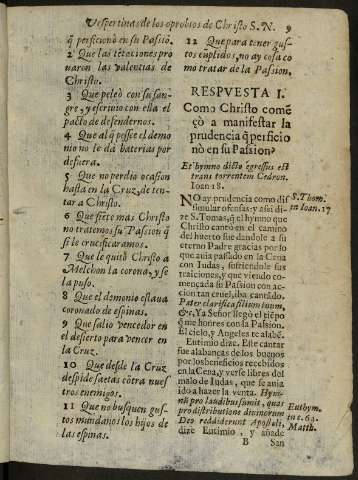 Vespertinas de los oprobios de Christo S.N. 9
q̃ perficionò en su Passiõ.
2 Que las tẽtaciones pro
uaron las valentias de
Christo.
3 Que peleò con su san-
gre, y escriuio con ella el
pacto de defendernos.
4 Que al q̃ possee el demo
nio no le da baterias por
defuera.
5 Que no perdio ocasion
hasta en la Cruz, de ten-
tar a Christo.
6 Que siete mas Christo
no tratemos su Passion q̃
si le crucificaramos.
7 Que le quitò Christo a
Melchon la corona, y se
la puso.
8 Que el demonio estaua
coronado de espinas.
9 Que salio vencedor en
el desierto para vencer en
la Cruz.
10 Que desde la Cruz
despide saetas cõtra nues
tros enemigos.
11 Que no busquen gus-
tos mundanos los hijos de
las espinas.
12 Que para tener gus-
tos cũplidos, no ay cosa co
mo tratar de la Passion.
RESPVESTA I.
Como Christo comẽ
çò a manifestar la
prudencia q̃ perficio
nò en su Passion?
Et hymno dicto egressus est
trans torrentem Cedron.
Ioan 18.
NO ay prudencia como dis
simular ofensas: y assi di-
ze S. Tomas, q̃ el hymno que
Christo cantò en el camino
del huerto fue dandole a su
eterno Padre gracias por lo
que auia passado en la Cena
con Iudas, sufriendole sus
traiciones, y que viendo co-
mençada su Passion con ac-
cion tan cruel, iba cantãdo.
Pater clarifica filium tuum,
&c. Ya Señor llegò el tiẽpo
q̃ me honres con la Passion.
El cielo, y Angeles te alabẽ.
Eutimio dize. Este cantar
fue alabanças de los buenos
por los beneficios recebidos
en la Cena, y verse libres del
malo de Iudas, que se auia
ido a hazer la venta. Hym-
nis pro laudibus sumit, quas
pro distributione diuinorum
Deo reddiderunt Apostoli,
dize Eutimio, y añade
B San
S. Thom.
in Ioan. 17
Euthym.
in c. 64.
Matth.